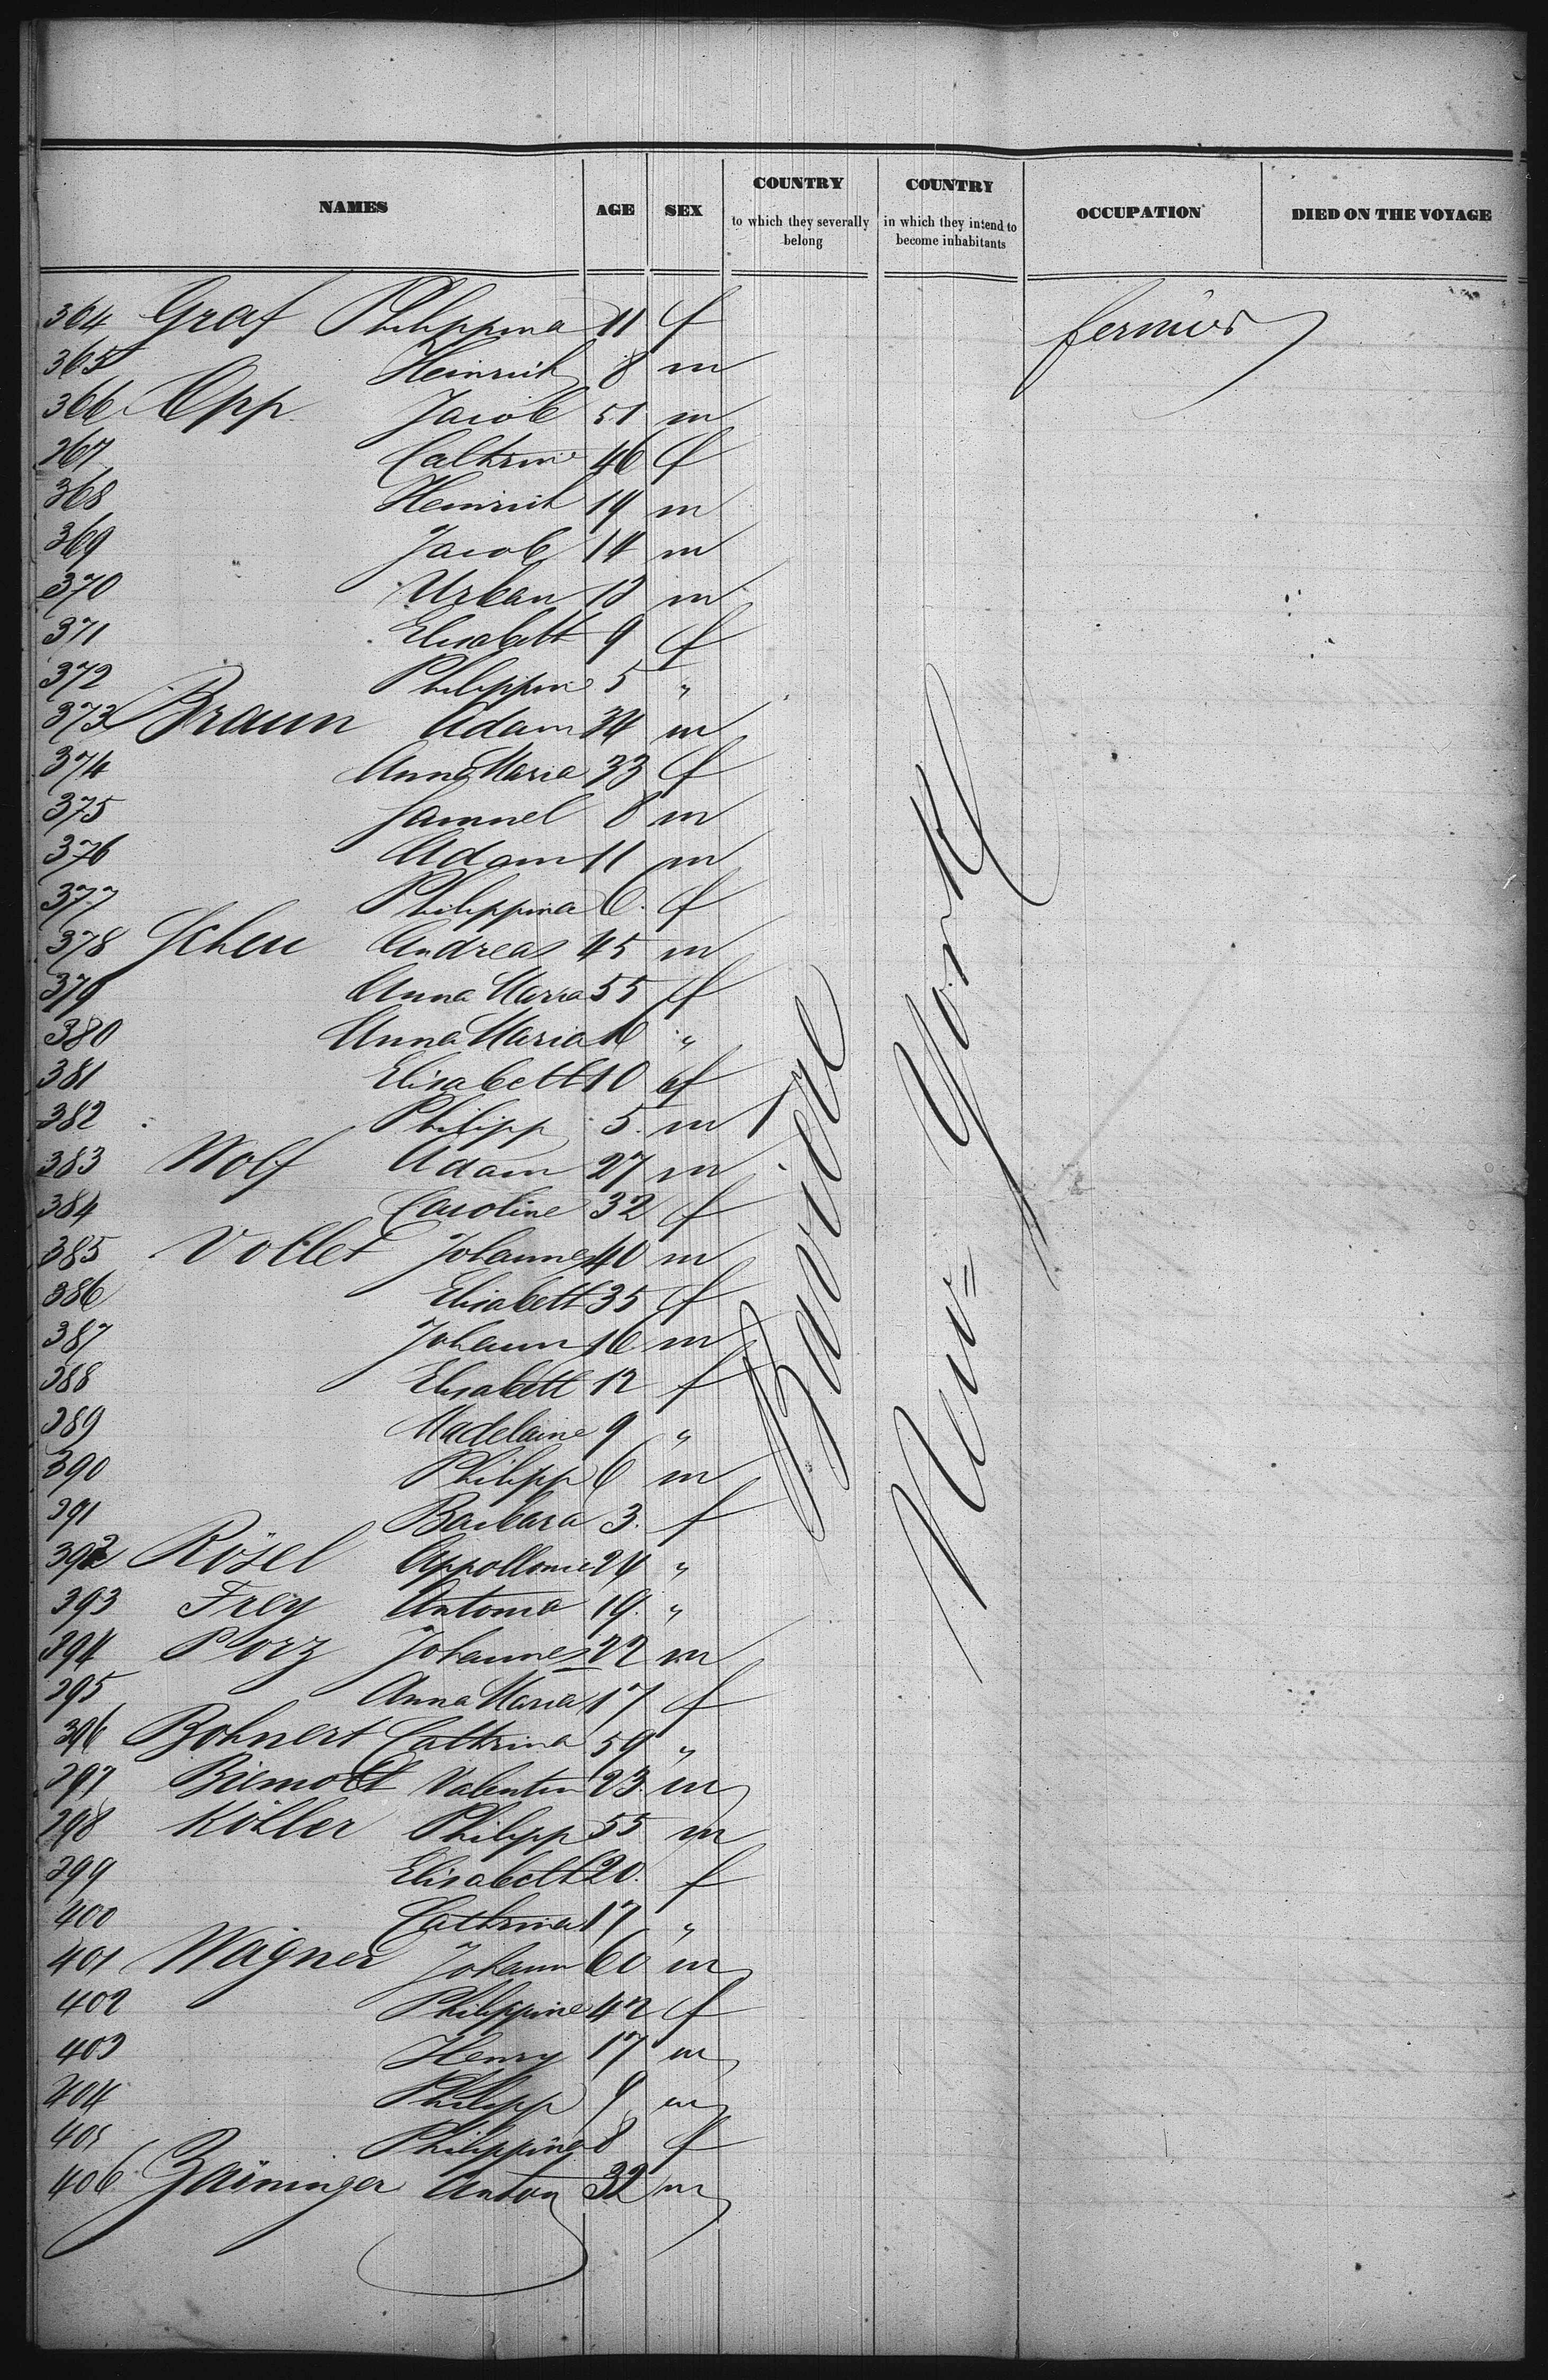 NAMES AGE SEX COUNTRY to which they severally belong COUNTRY in which they intend to become inhabitants OCCUPATION DIED ON THE VOYAGE
364 Graf Philippina 11 f fermier
365 Heinrich 8 m
366 Opp Jacob 51 m
367 Cathrine 46 f
368 Heinrich 19 m
369 Jacob 14 m
370 Urban 13 m
371 Elisabett 9 f
372 Philippine 5 "
373 Braun Adam 34 m
374 Anna Maria 33 f
375 Samuel 8 m
376 Adam 11 m
377 Philippina 6 f
378 Scheu Andreas 45 m
379 Anna Maria 55 f
380 Anna Maria 16 "
381 Elisabett 10 f
382 Philipp 5 m
383 Wolf Adam 27 m
384 Caroline 32 f
385 Vollet Johannes 40 m
386 Elisabett 35 f
387 Johann 16 m
388 Elisabett 12 f
389 Madelaine 9 "
390 Philipp 6 m
391 Barbara 3 f
392 Rösel Appollonie 24 "
393 Frey Antonia 19 "
394 Porz Johannes 22 m
395 Anna Maria 17 f
396 Bohnert Cathrina 59 "
397 Valentin 23 m
398 Köhler Philipp 55 m
399 Elisabett 20 f
400 Cathrina 17 "
401 Wagner Johann 60 m
402 Philippine 42 f
403 Henry 17 m
404 Philipp 9 m
405 Philippine 8 f
406 Zaininger Anton 32 m
Bavière
New=York